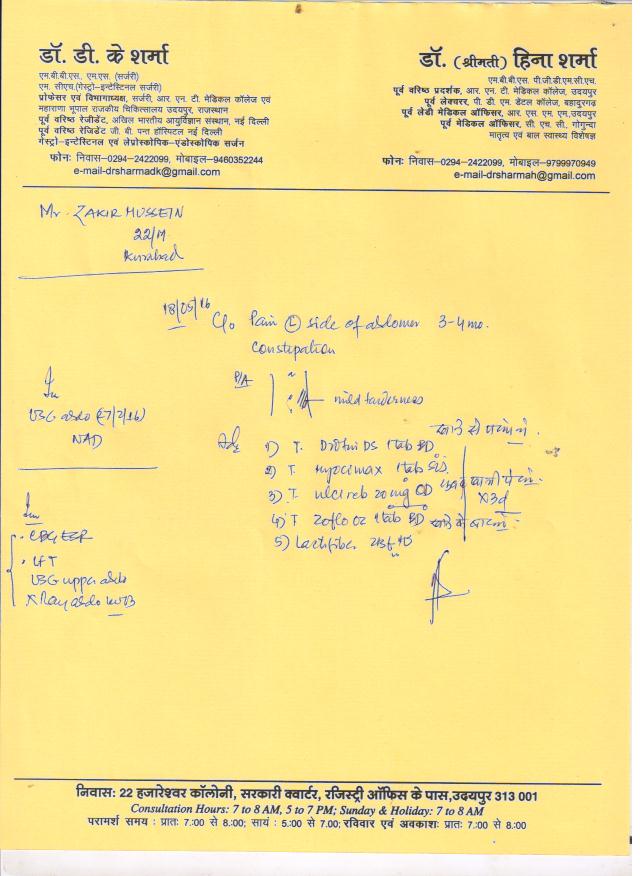 डॉ. डी. के शर्मा
एम.बी.बी.एस., एम.एस. (सर्जरी)
एम. सीएच.(गेस्ट्रो-इन्टेस्टिनल सर्जरी)
प्रोफेसर एवं विभागाध्यक्ष, सर्जरी, आर. एन. टी. मेडिकल कॉलेज एवं
महाराणा भूपाल राजकीय चिकित्सालय उदयपुर, राजस्थान
पूर्व वरिष्ठ रेजीडेंट, अखिल भारतीय आयुर्विज्ञान संस्थान, नई दिल्ली
पूर्व वरिष्ठ रेजिडेंट जी. बी. पन्त हॉस्पिटल नई दिल्ली
गेस्ट्रो-इन्टेस्टिनल एवं लेप्रोस्कोपिक-एंडोस्कोपिक सर्जन
फोनः निवास-0294-2422099, मोबाइल-9460352244
e-mail-drsharmadk@gmail.com
डॉ. (श्रीमती) हिना शर्मा
एम.बी.बी.एस. पी.जी.डी.एम.सी.एच.
पूर्व वरिष्ठ प्रदर्शक, आर. एन. टी. मेडिकल कॉलेज, उदयपुर
पूर्व लेक्चरर, पी. डी. एम. डेंटल कॉलेज, बहादुरगढ़
पूर्व लेडी मेडिकल ऑफिसर, आर. एस. एम. एम,उदयपुर
पूर्व मेडिकल ऑफिसर, सी. एच. सी., गोगुन्दा
मातृत्व एवं बाल स्वास्थ्य विशेषज्ञ
फोनः निवास-0294-2422099, मोबाइल-9799970949
e-mail-drsharmah@gmail.com
Mr. ZAKIR HUSSEIN
22/M
Kurabad
18/05/16 C/o Pain (L) side of abdomen 3-4 mo.
Constipation
P/A mild tenderness
USG abdo (27/2/16)
NAD
Adv
1) T. DS 1 tab BD
2) T. 1 tab
3) T. 20mg OD
x3d
4) T Zoflo OZ 1 tab BD
5) Lactifiber
LFT
USG upper abdo
X Ray abdo KUB
निवास: 22 हजारेश्वर कॉलोनी, सरकारी क्वार्टर, रजिस्ट्री ऑफिस के पास,उदयपुर 313 001
Consultation Hours: 7 to 8 AM, 5 to 7 PM; Sunday & Holiday: 7 to 8 AM
परामर्श समय : प्रातः 7.00 से 8.00; सायं : 5.00 से 7.00; रविवार एवं अवकाशः प्रातः 7.00 से 8.00